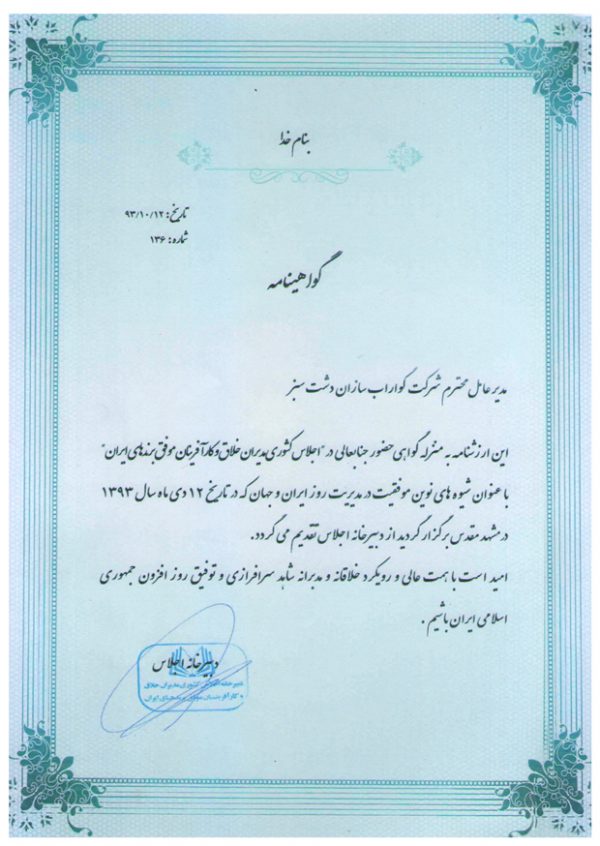 بنام خدا
تاریخ: ۹۳/۱۰/۱۲
شماره: ۱۳۶
گواهینامه
مدیر عامل محترم شرکت کواراب سازان دشت سبز
این ارزشنامه به منزله گواهی حضور جنابعالی در "اجلاس کشوری مدیران خلاق و کارآفرینان موفق برندهای ایران"
با عنوان شیوه های نوین موفقیت در مدیریت روز ایران و جهان که در تاریخ ۱۲ دی ماه سال ۱۳۹۳
در مشهد مقدس برگزار گردید از دبیرخانه اجلاس تقدیم می گردد.
امید است با همت عالی و رویکرد خلاقانه و مدبرانه شاهد سرافرازی و توفیق روز افزون جمهوری
اسلامی ایران باشیم.
دبیرخانه اجلاس
دبیرخانه اجلاس کشوری مدیران خلاق
و کارآفرینان موفق برندهای ایران